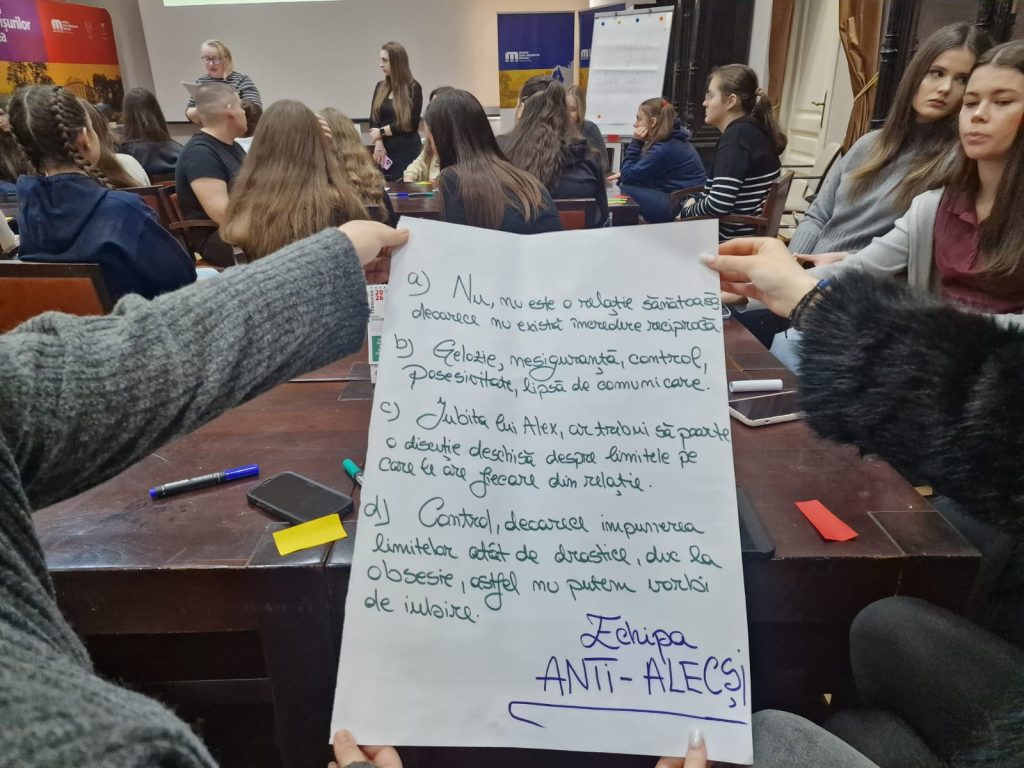 a) Nu, nu este o relație sănătoasă
deoarece nu există încredere reciprocă
b) Gelozie, nesiguranță, control,
posesivitate, lipsă de comunicare.
c) Iubita lui Alex, ar trebui să poarte
o discuție deschisă despre limitele pe
care le are fiecare din relație.
d) Control, deoarece impunerea
limitelor atât de drastice, duc la
obsesie, astfel nu putem vorbi
de iubire.
Echipa
ANTI-ALECȘI
2026